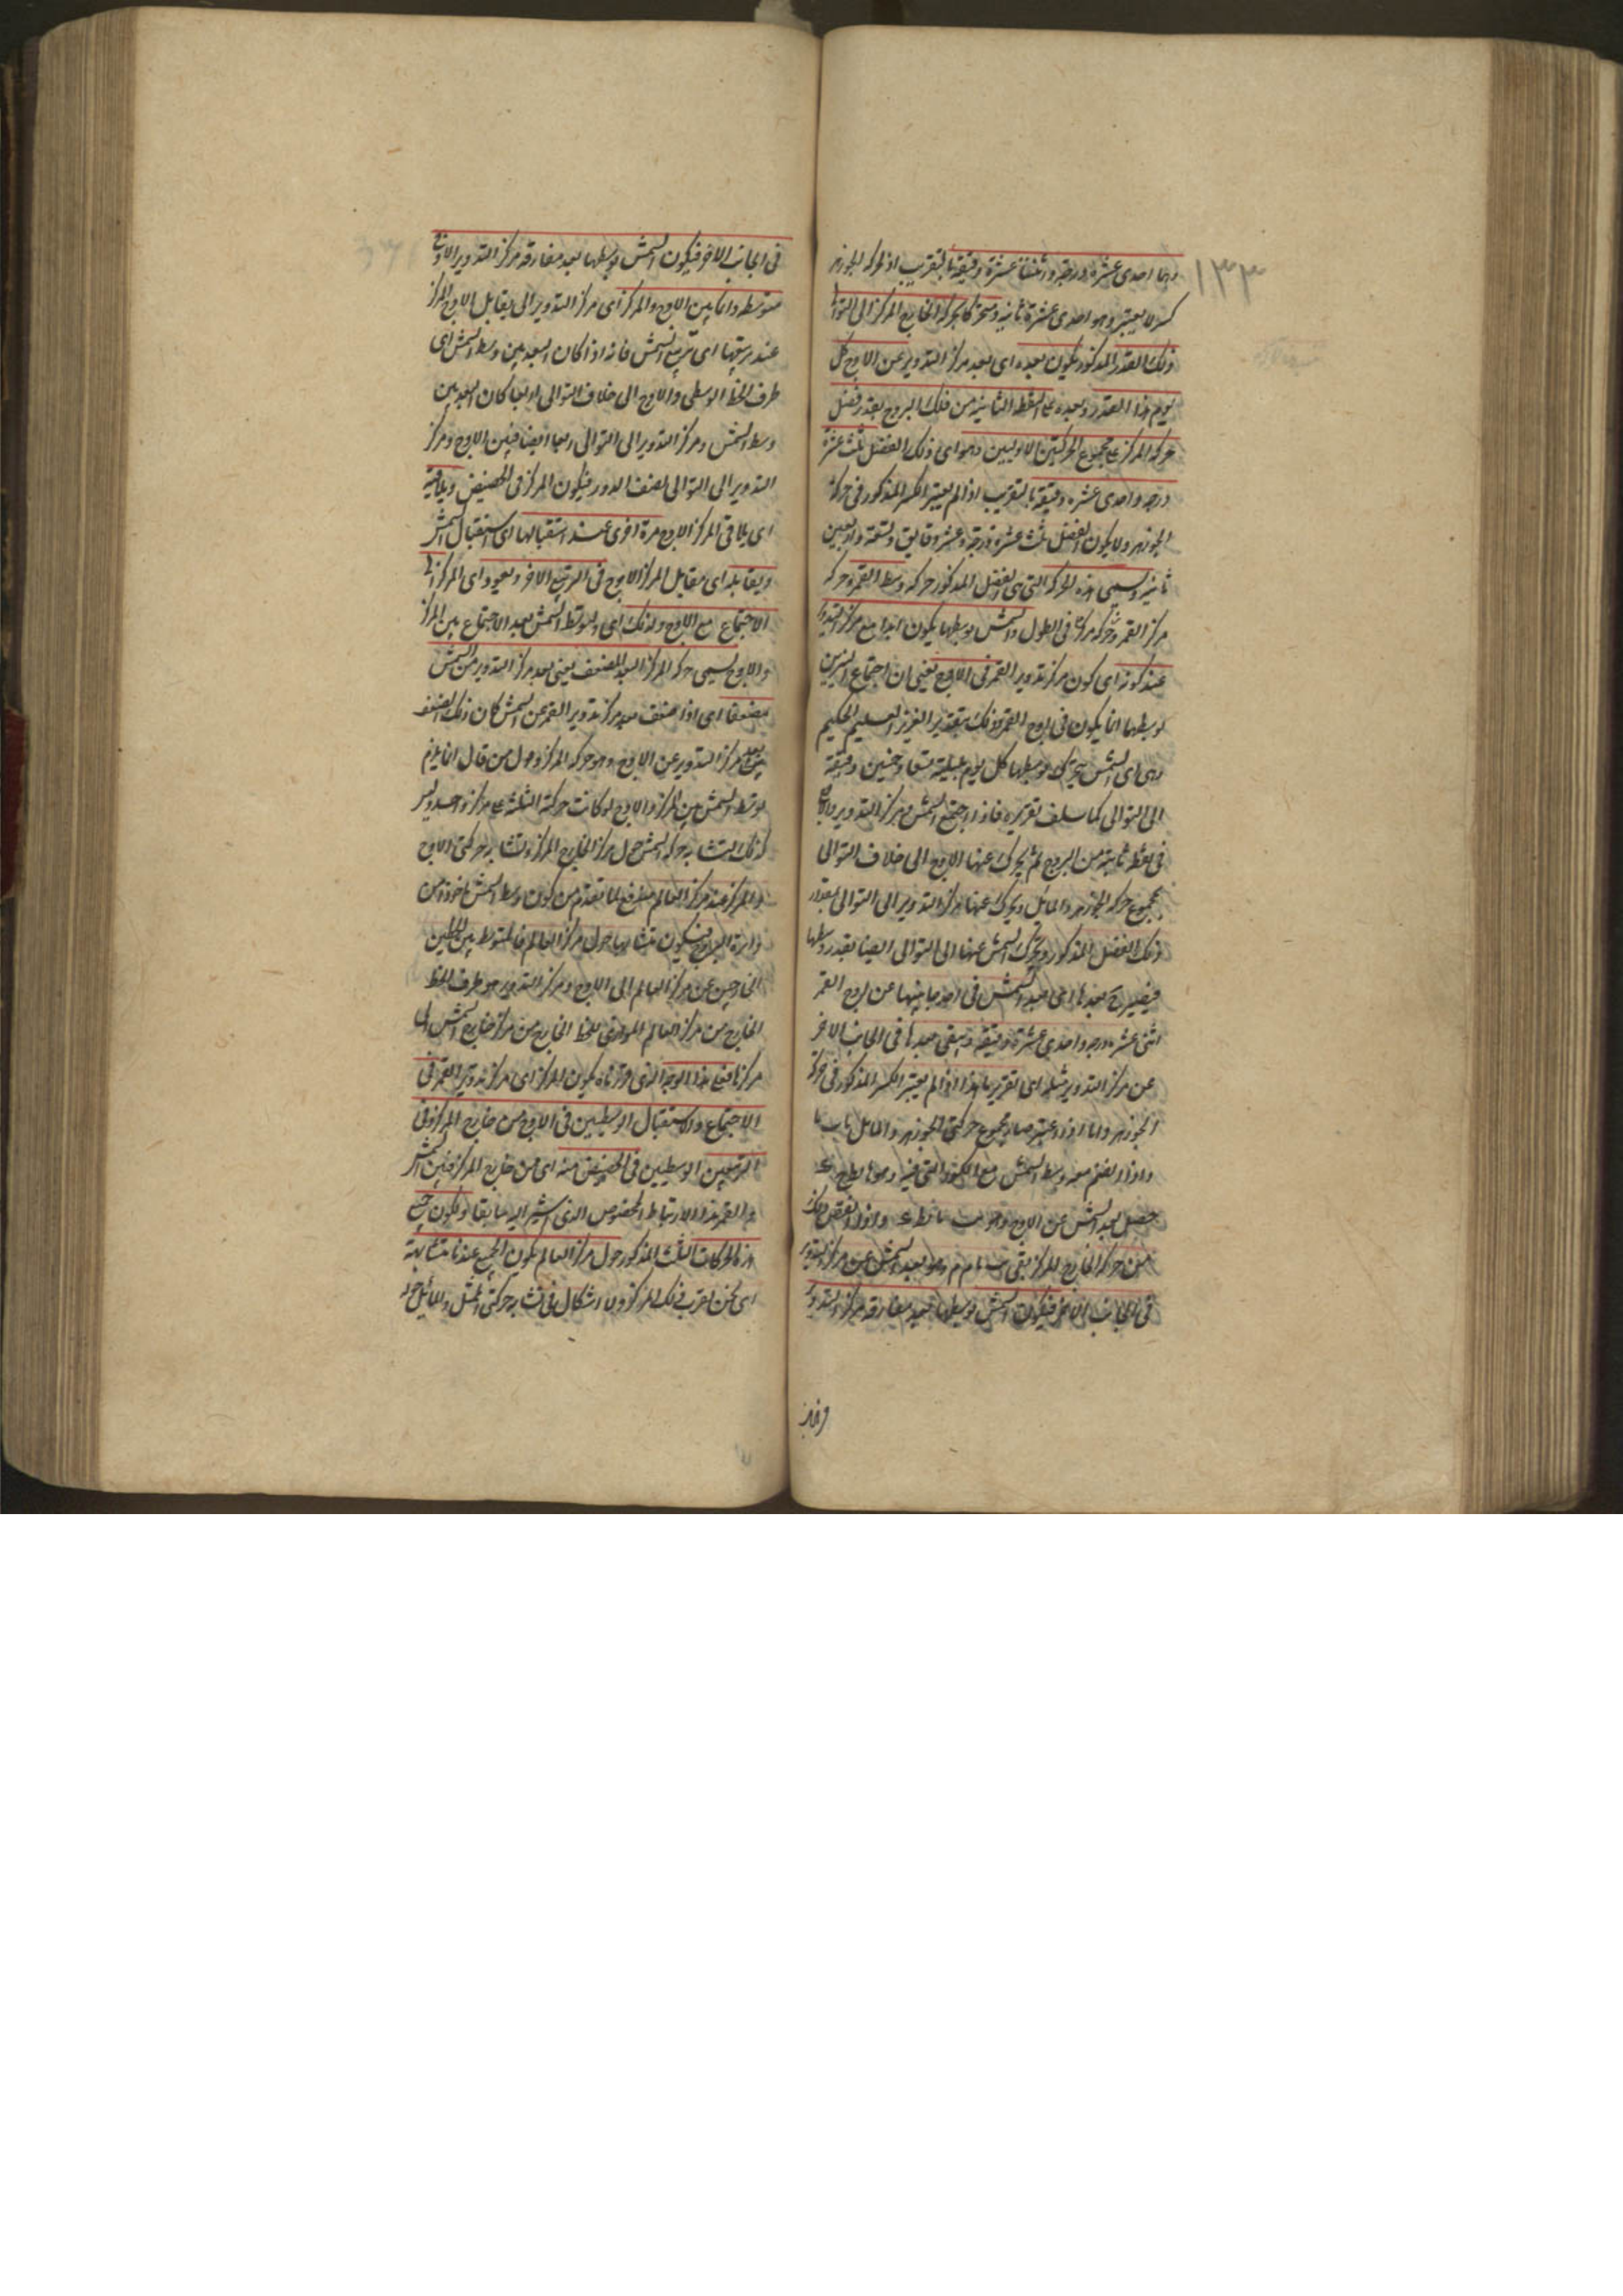 وهما احدى عشرة درجة واثنتا عشرة دقيقة بالتقريب اذ لحركة الجوزهر
كسر لا يعتبر وهو احدى عشرة ثانية ومتحركا بحركة الخارج المركز الى التوالى
ذلك القدر المذكور يكون بعده اى بعد مركز التدوير عن الاوج كل
يوم هذا القدر وبعده عن النقطة الثانية من فلك البروج بقدر فضل
حركة المركز على مجموع الحركتين الاوليين وهو اى ذلك الفضل ثلث عشرة
درجة واحدى عشرة دقيقة بالتقريب اذ لم يعتبر الكسر المذكور فى حركة
الجوزهر ولا يكون الفضل ثلث عشرة درجة وعشر دقايق وتسعة واربعين
ثانية ويسمى هذه الحركة التى هى الفضل المذكور حركة وسط القمر وحركة
مركز القمر وحركة مركزه فى الطول والشمس بوسطها يكون ابدا مع مركز التدوير
عند كونه اى كون مركز تدوير القمر فى الاوج يعنى ان اجتماع النيرين
بوسطهما انما يكون فى اوج القمر وذلك بتقدير العزيز العليم الحكيم
وهى اى الشمس يتحرك بوسطها كل يوم بليلته تسعا وخمسين دقيقة
الى التوالى كما سلف تقريره فاذا اجتمع الشمس ومركز التدوير والاوج
فى نقطة ثابتة من البروج ثم يتحرك عنها الاوج الى خلاف التوالى
بمجموع حركة الجوزهر والمايل ويتحرك عنها مركز التدوير الى التوالى بمقدار
ذلك الفضل المذكور ويتحرك الشمس عنها الى التوالى ايضا بقدر وسطها
فيصير ح بعدها اى بعد الشمس فى احد جانبيها عن اوج القمر
اثنى عشرة درجة واحدى عشرة دقيقة ويبقى بعدها فى الجانب الاخر
عن مركز التدوير مثله اى تقريبا هذا اذا لم يعتبر الكسر المذكور فى حركة
الجوزهر واما اذا اعتبر صار مجموع حركتى الجوزهر والمايل
واذا انضم معه وسط الشمس مع الكسور التى فيه وهو
حصل بعد الشمس عن الاوج وهو واذا انقص ذلك
من حركة الخارج المركز بقى وهو بعد الشمس عن مركز التدوير
فى الجانب الاخر فيكون الشمس بوسطها بعد مفارقة مركز التدوير
فى الجانب الاخر فيكون الشمس بوسطها بعد مفارقة مركز التدوير الاوج
متوسطة دائما بين الاوج والمركز اى مركز التدوير الى يقابل الاوج المركز
عند تربيعها اى تربيع الشمس فانه اذا كان البعد بين وسط الشمس اى
طرف الخط الوسطى والاوج الى خلاف التوالى اربعا كان البعد بين
وسط الشمس ومركز التدوير الى التوالى ربعا ايضا فبين الاوج ومركز
التدوير الى التوالى نصف الدور فيكون المركز فى الحضيض ويلاقيه
اى يلاقى المركز الاوج مرة اخرى عند استقبالها اى استقبال الشمس
ويقابله اى يقابل المركز الاوج فى التربيع الاخر ويعود اى المركز الى
الاجتماع مع الاوج ولذلك اى ولتوسط الشمس بعد الاجتماع بين المركز
والاوج يسمى حركة المركز البعد المضعف يعنى بعد مركز التدوير من الشمس
مضعفا اى اذا ضعف بعد مركز تدوير القمر عن الشمس كان ذلك الضعف
بعد مركز التدوير عن الاوج وهو حركة المركز وحول من قال انما يلزم
توسط الشمس بين المركز والاوج لو كانت حركة الثلثة على مركز واحد وليس
كذلك لتشابه حركة الشمس حول مركز الخارج المركز وتشابه حركتى الاوج
والمركز عند مركز العالم مندفع لما تقدم من كون وسط الشمس ماخوذة من
دايرة البروج فيكون تشابهها حول مركز العالم فالمتوسط بين الخطين
الخارجين عن مركز العالم الى الاوج ومركز التدوير هو طرف الخط
الخارج من مركز العالم الموازى للخط الخارج من مركز خارج الشمس الى
مركزها فعلى هذا الوجه الذى قررناه يكون المركز اى مركز تدوير القمر فى
الاجتماع والاستقبال الوسطيين فى الاوج من خارج المركز وفى
التربيعين الوسطيين فى الحضيض منه اى من خارج المركز فبين الشمس
و القمر هذا الارتباط المخصوص الذى اشير اليه سابقا ولكون جميع
هذه الحركات الثلث المذكور حول مركز العالم يكون الجميع عندنا متشابهة
اى نحن بقرب فلك المركز ولا اشكال فى تشابه حركتى الممثل والمائل حول
١٣٣